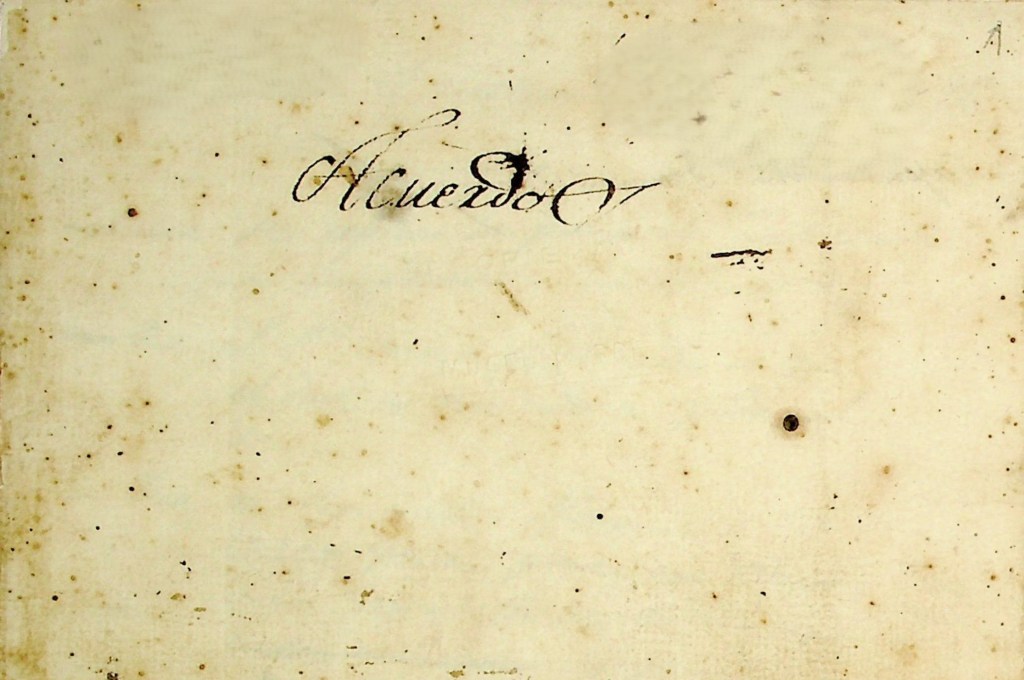 1
Acuerdo